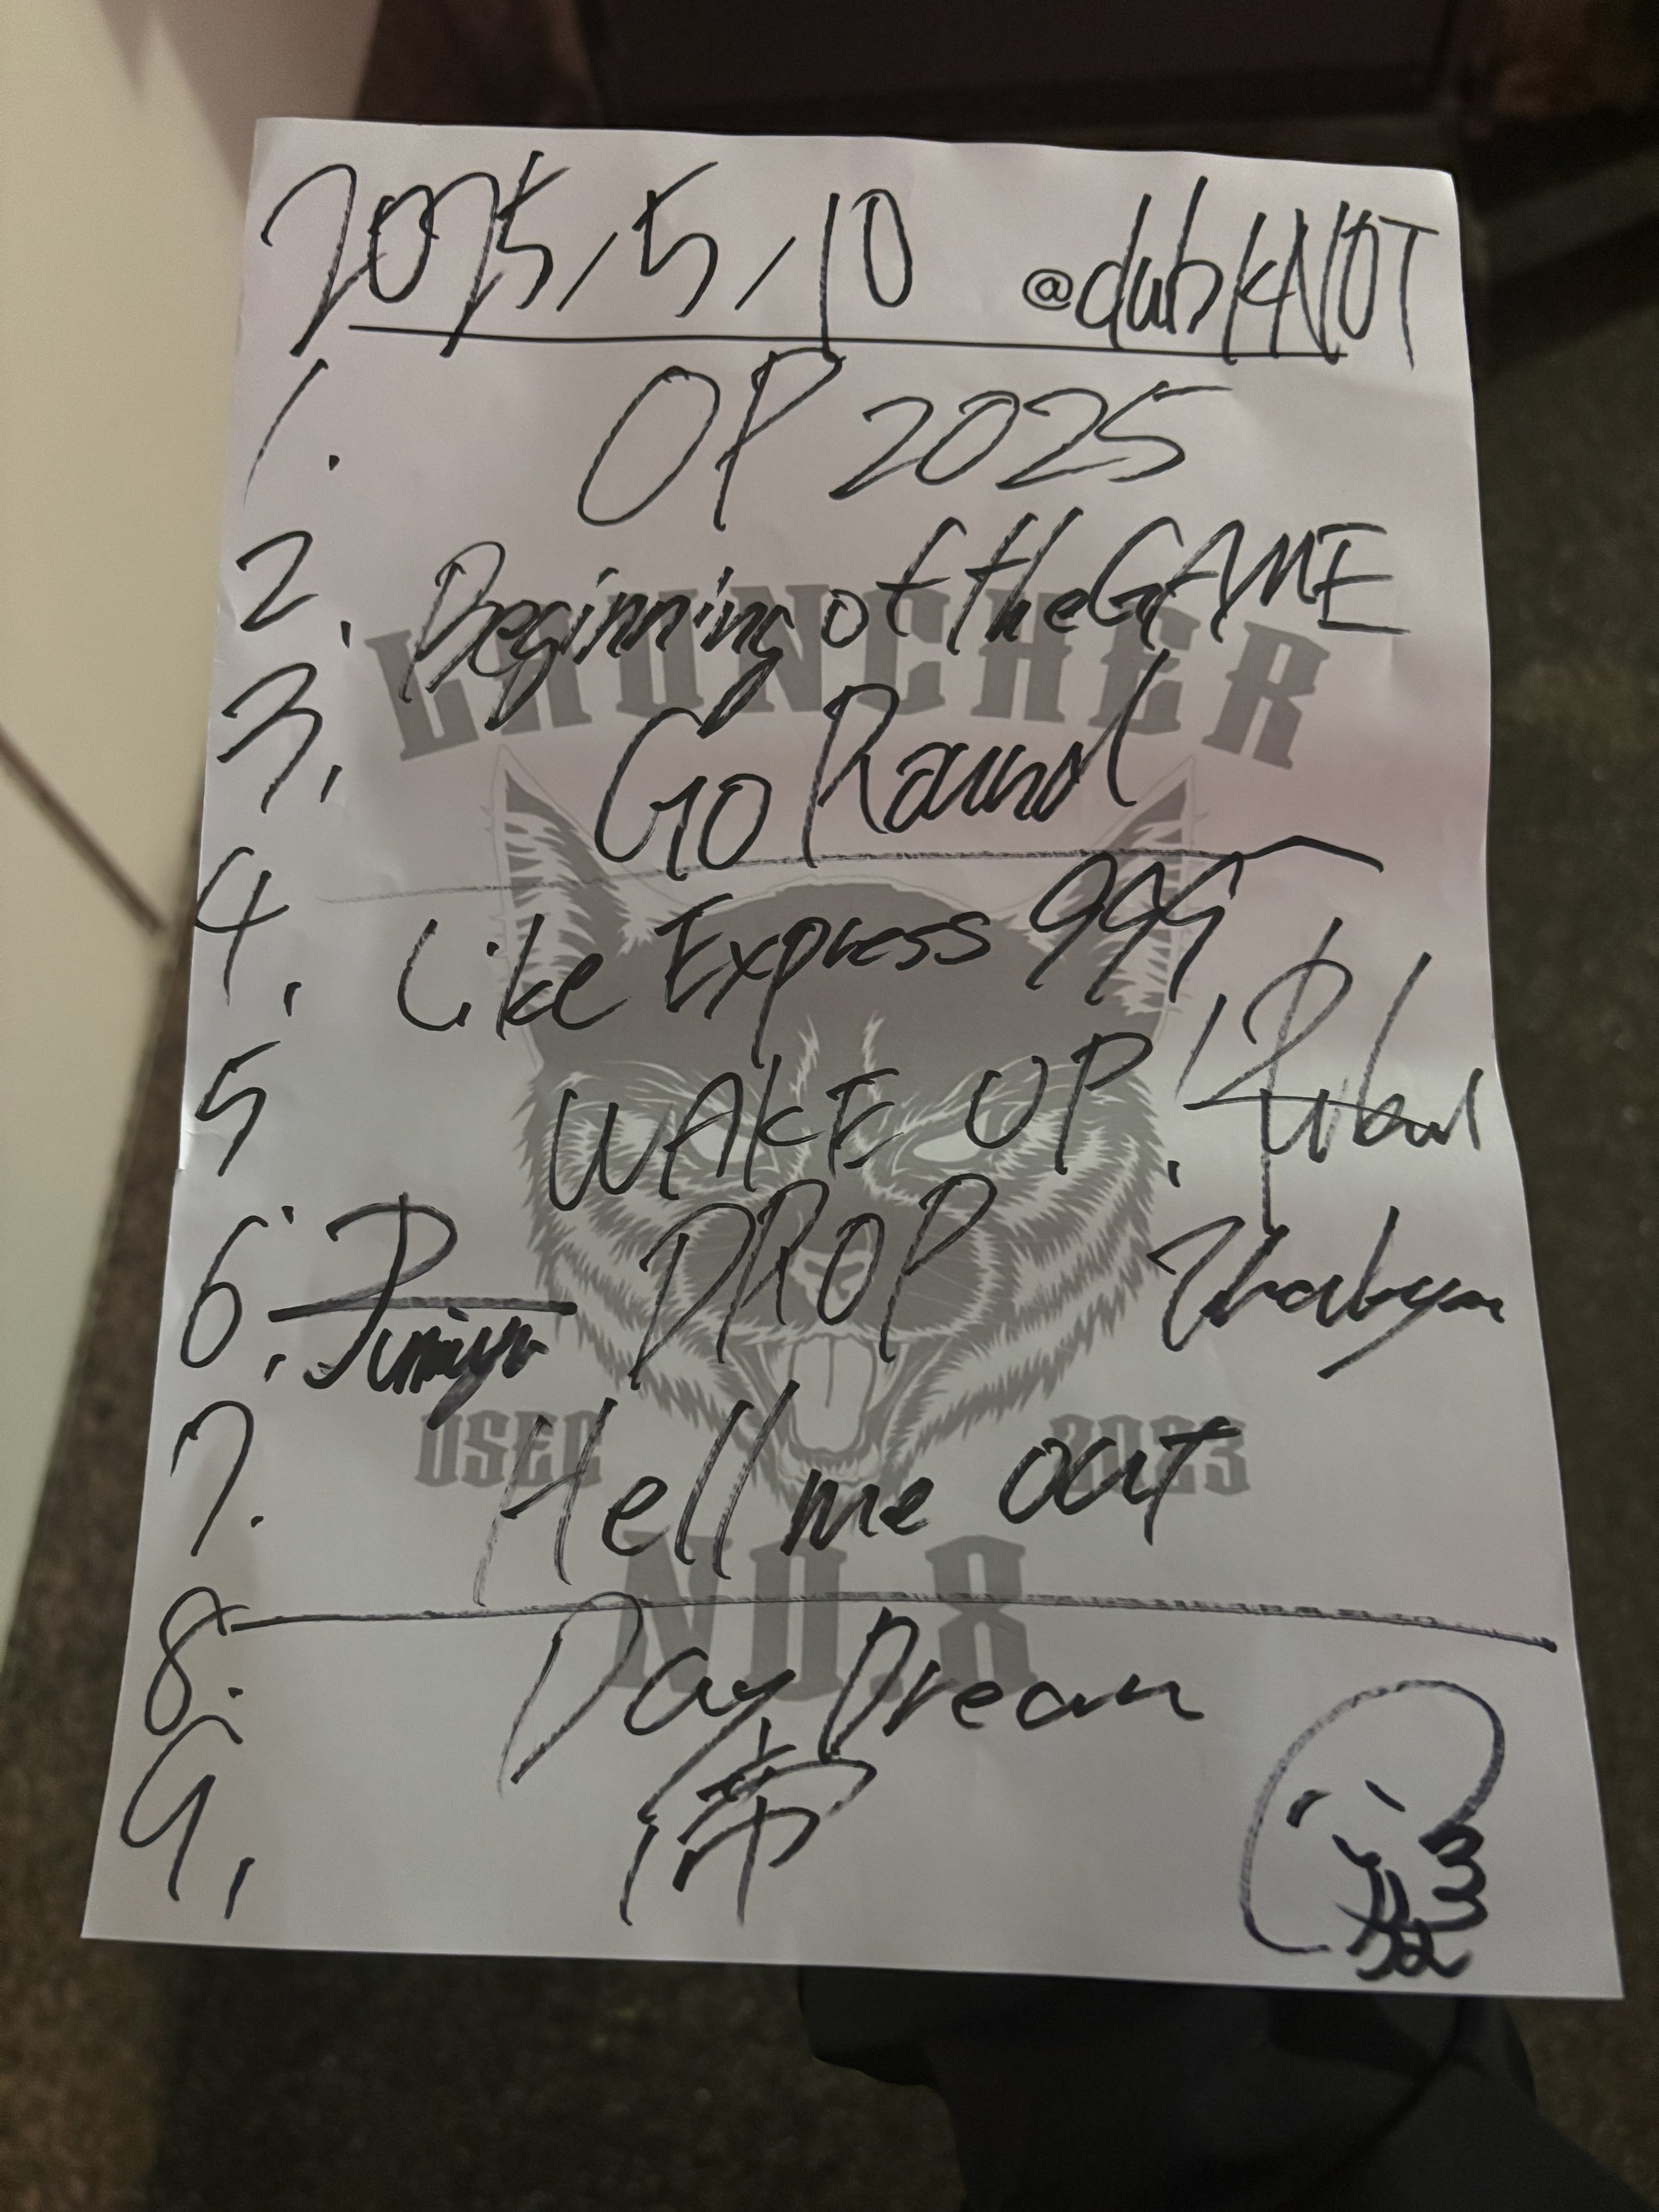 2025/5/10 @dubkNOT
1. OP 2025
2. Beginning of the GAME
LAUNCHER
3. Go Round
4. Like Express 999
5. WAKE UP!
6. DROP
7. Hell me out
2023
NO.8
8. Day Dream
9. 帝